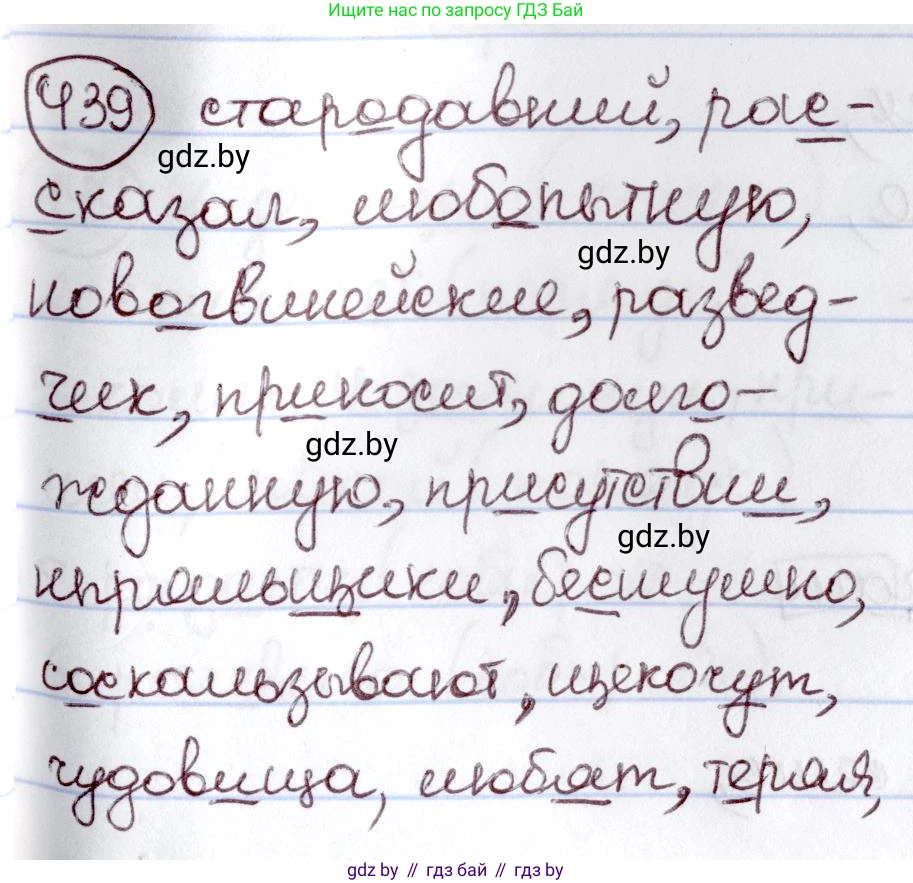 Ищите нас по запросу ГДЗ Бай
439 стародавний, рас-
gdz.by
сказал, любопытную,
gdz.by
новогвинейские, развед-
чик, приносит, долго-
gdz.by
жданную, присутствии,
gdz.by
ныряльщики, бесшумно,
соскальзывают, щекочут,
чудовища, любят, теряя,
gdz.by // гдз бай // гдз by